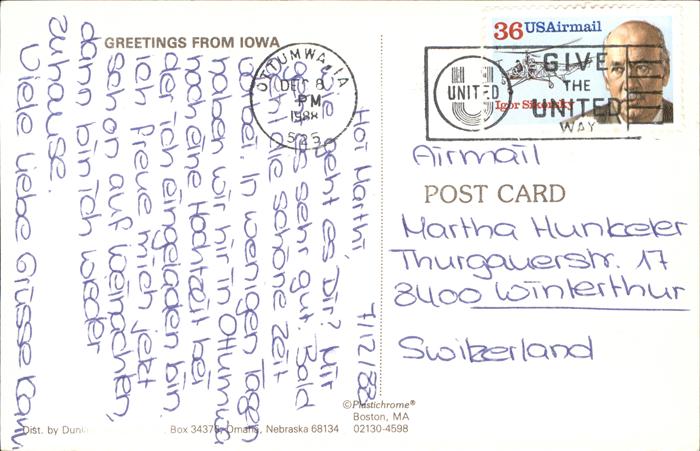 GREETINGS FROM IOWA
Hoi Marthi, 7/12/88
Wie geht es Dir? Mir
geht es sehr gut. Bald
ist die schöne Zeit
vorbei. In wenigen Tagen
haben wir hir in Ottumwa
noch eine Hochtzeit bei
der ich eingeladen bin.
Ich freue mich jetzt
schon auf Weinachten,
dann bin ich wieder
zuhause.
Viele liebe Grüsse
OTTUMWA, IA
DEC 8
PM
1988
525
UNITED
GIVE
THE
UNITED
WAY
36 USAirmail
Igor Sikorsky
Airmail
POST CARD
Martha Hunkeler
Thurgauerstr. 17
8400 Winterthur
Switzerland
©Plastichrome®
Boston, MA
02130-4598
Dist. by Box 34375, Omaha, Nebraska 68134